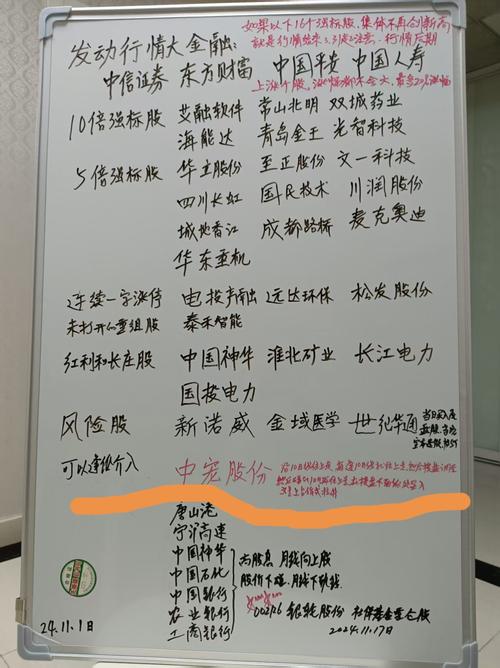 如果以下16个强标股,集体不再创新高
就是行情结束
发动行情大金融:
中信证券 东方财富 中国平安 中国人寿
10倍强标股 艾融软件 常山北明 双城药业
海能达 青岛金王 光智科技
5倍强标股 华立股份 至正股份 文一科技
四川长虹 国民技术 川润股份
城地香江 成都路桥 麦克奥迪
华东重机
连续一字涨停 电投产融 远达环保 松发股份
未打开的重组股 泰禾智能
红利和长庄股 中国神华 淮北矿业 长江电力
国投电力
风险股 新诺威 金域医学 世纪华通
可以逢低介入 中宠股份
唐山港
宁沪高速
中国神华
中国石化 高股息 月线向上股
中国银行 股价下碰,月线下轨线
农业银行 002126 银轮股份 社保基金重仓股
工商银行
24.11.1日 2024.11.17日